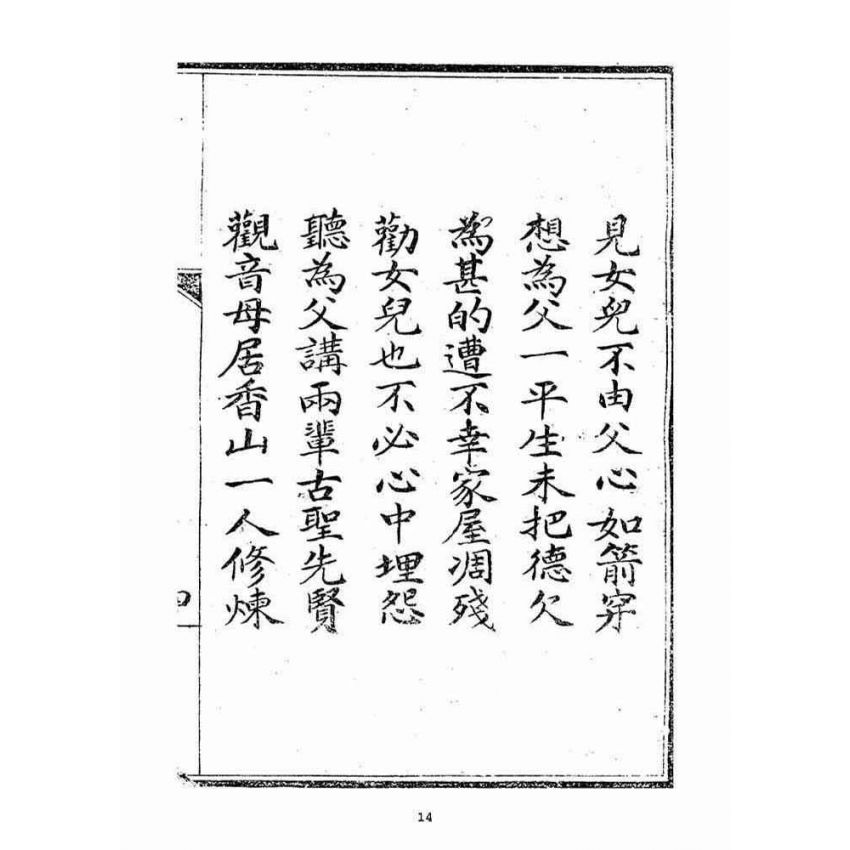 見女兒不由父心如箭穿
想為父一平生未把德欠
為甚的遭不幸家屋凋殘
勸女兒也不必心中埋怨
聽為父講兩輩古聖先賢
觀音母居香山一人修煉
14